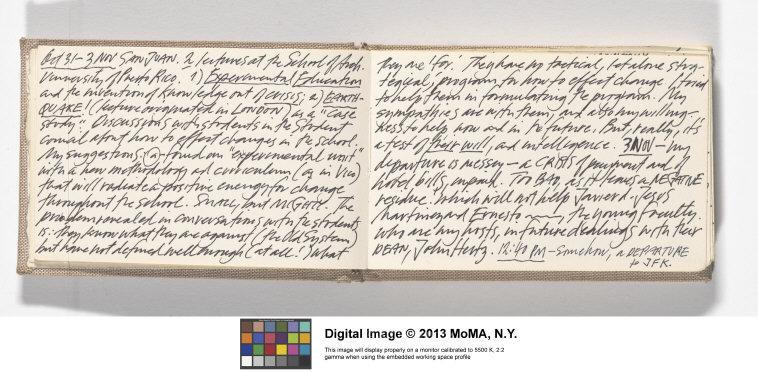 Oct 31 - 3 NOV SAN JUAN. 2 lectures at the School of Arch.
University of Puerto Rico. 1) Experimental Education
and the invention of knowledge out of CRISIS; 2) EARTH-
QUAKE! (lecture originated in LONDON) as a "case
study". Discussions with students in the Student
Council about how to effect changes in the school.
My suggestions: (a) found an "experimental unit"
with a new methodology and curriculum (as in Vico)
that will radiate a positive energy for change
throughout the school. SMALL, but MIGHTY. The
problem revealed in conversations with the students
is: they know what they are against (the Old System)
but have not defined well enough (at all!) what
they are 'for.' They have no tactical, let alone stra-
tegical, program for how to effect change. I tried
to help them in formulating the program. My
sympathies are with them, and also my willing-
ness to help now and in the future. But, really, it's
a test of their will, and intelligence. 3 NOV - My
departure is messy - a CRISIS of payment and of
hotel bills, unpaid. TOO BAD, as it leaves a NEGATIVE
residue. Which will not help Javier de Jesús
Martinez and Ernesto, the young faculty
who are my hosts, in future dealings with their
DEAN, John Hertz. 12:40 PM - Somehow, a DEPARTURE
to JFK.
Digital Image © 2013 MoMA, N.Y.
This image will display properly on a monitor calibrated to 5500 K, 2.2
gamma when using the embedded working space profile